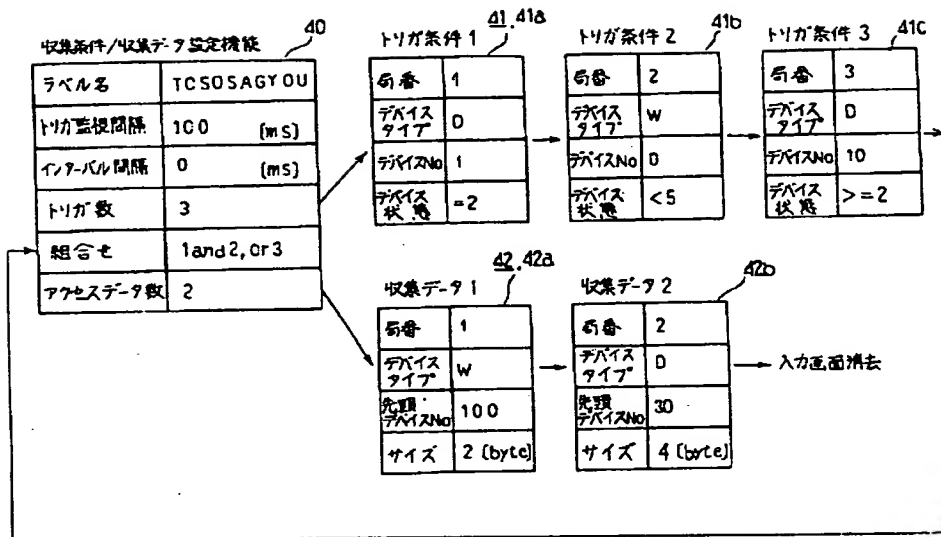 収集条件/収集データ設定機能
40
ラベル名 TCSOSAGYOU
トリガ監視間隔 100 [ms]
インターバル間隔 0 [ms]
トリガ数 3
組合せ 1and2,or3
アクセスデータ数 2
41,41a
トリガ条件1
局番 1
デバイス
タイプ D
デバイスNo 1
デバイス
状態 =2
41b
トリガ条件2
局番 2
デバイス
タイプ W
デバイスNo 0
デバイス
状態 <5
41c
トリガ条件3
局番 3
デバイス
タイプ D
デバイスNo 10
デバイス
状態 >=2
42,42a
収集データ1
局番 1
デバイス
タイプ W
先頭
デバイスNo 100
サイズ 2 [byte]
42b
収集データ2
局番 2
デバイス
タイプ D
先頭
デバイスNo 30
サイズ 4 [byte]
入力画面消去